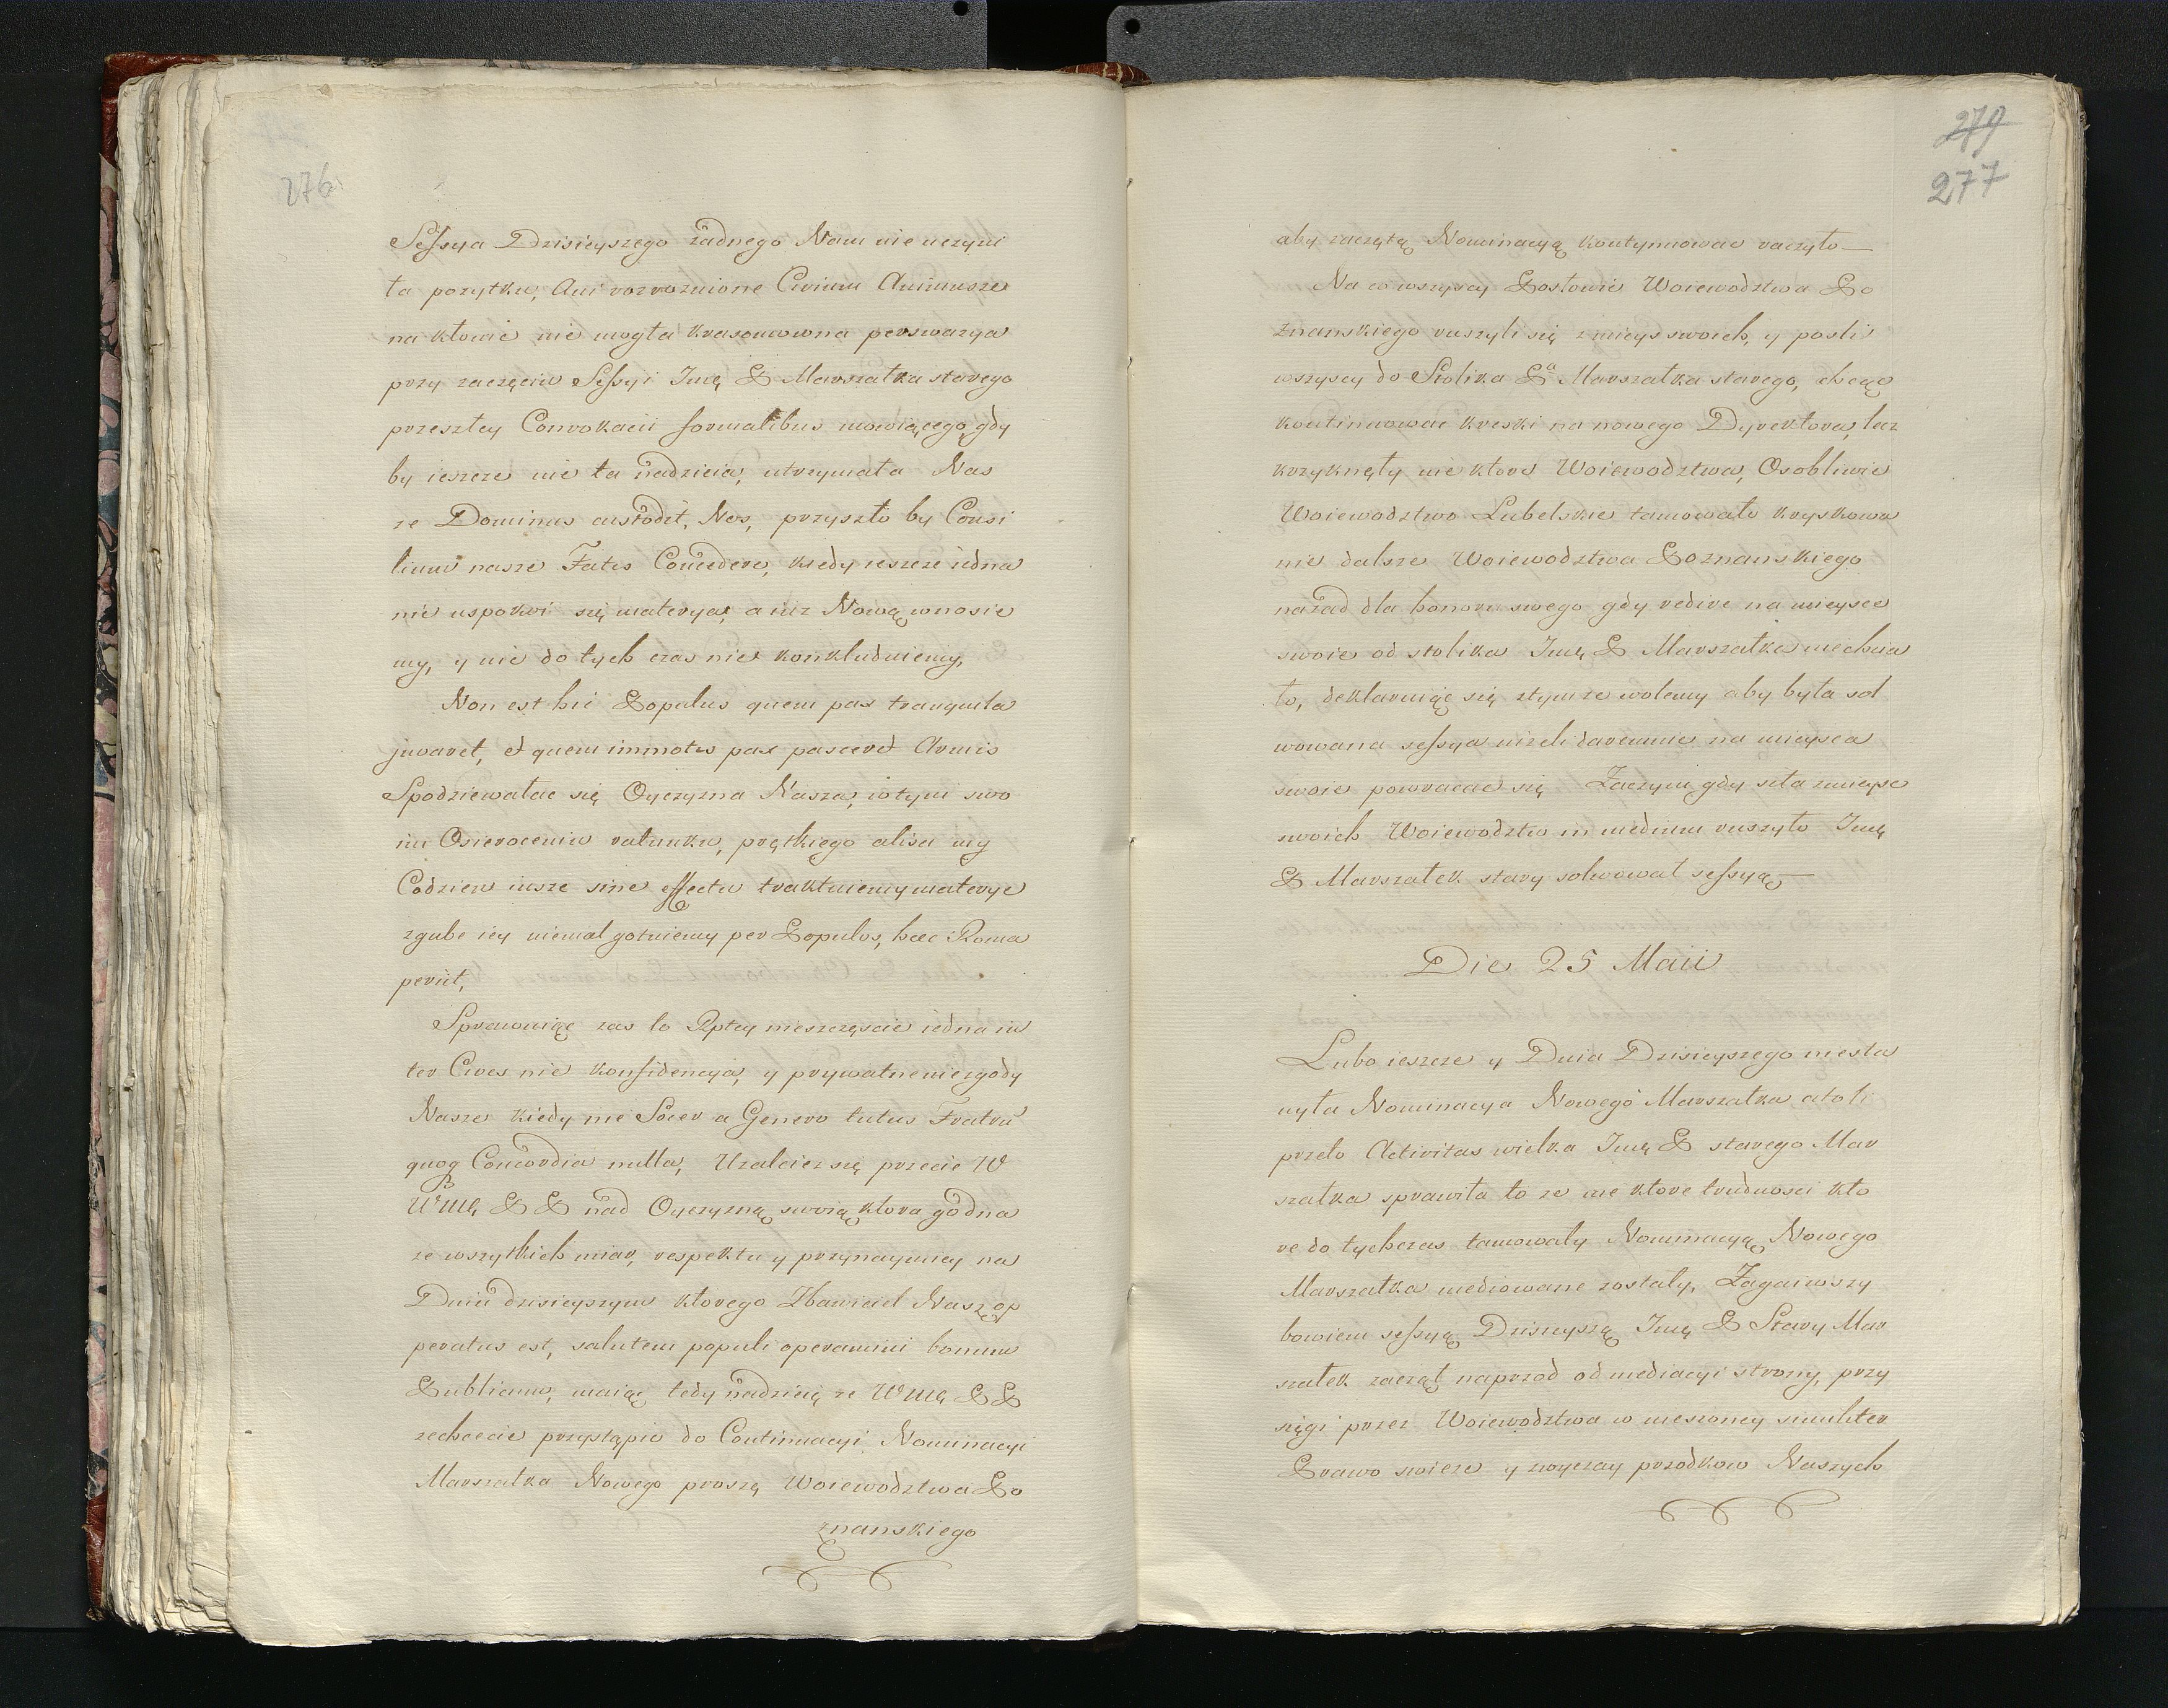 276
Sessya Dzisieyszego żadnego Nam nie uczyni
ła pożytku, Ani rozroznione Civium Animusze
na ktore nie mogła krasomowna perswazya
przy zaczęciu Sessyi Jmę P Marszałka starego
przeszłey Convokacii formalibus mowiącego, gdy
by ieszcze nie ta nadzieia, utrzymała Nas
ze Dominus custodit, Nos, przyszło by Consi
lium nasze Fatis Concedere, kiedy ieszcze iedna
nie uspokoi się materya, a iuz Nową wnosie
my, y nie do tych czas nie konkluduiemy,
Non est hic Populus quem pax tranquila
juvaret, et quem immotis pax pasceret Armis
Spodziewałae się Oyczyzna Nasza, w tym swo
im Osieroceniu ratunku, prętkiego alisci my
Codzien insze sine effectu traktuiemy materye
zgube iey niemal gotuiemy per Populos, haec Roma
periit,
Sprawuiąc zas to Rptey nieszczęscie iedna in
ter Cives nie konfidencya, y prywatne niezgody
Nasze kiedy nie Socer a Genero tutus Fratrū
quoq Concordia nulla, Uzalciesz się przecie W
WMę P P nad Oyczyzną swoią ktora godna
ze wszytkich miar, respektu y przynaymiey na
Dniu dzisieyszym ktorego Zbawiciel Nasz op
peratus est, salutem populi operamini bonum
Publicum, maiąc tedy nadzieię ze WMę P P
zechcecie przystąpic do Continuacyi Nominacyi
Marszałka Nowego proszę Woiewodztwa Po
znanskiego
279
277
aby zaczętą Nominacyą kontynuowac raczyło
Na co wszyscy Posłowie Woiewodztwa Po
znanskiego ruszyli się z mieys swoich, y posli
wszyscy do Stolika Pa Marszałka starego, chcąc
kontinuowac kreski na nowego Dyrektora, lecz
krzyknęły nie ktore Woiewodztwa, Osobliwie
Woiewodztwo Lubelskie tamowało kryskowa
nie dalsze Woiewodztwa Poznanskiego
nazad dla honoru swego gdy redire na mieysce
swoie od stolika Jmę P Marszałka niechcia
ło, deklaruiąc się ztym ze wolemy aby była sol
wowana sessya nizeli daremnie na mieysca
swoie powracac się Zaczym gdy siła z mieysc
swoich Woiewodztw in medium ruszyło Jmę
P Marszałek stary solwował sessyą
Die 25 Maii
Lubo ieszcze y Dnia Dzisieyszego niesta
nyła Nominacya Nowego Marszałka atoli
przeto Activitas wielka Jmę P starego Mar
szałka sprawiła to ze nie ktore trudnosci kto
re do tychczas tamowały Nominacyą Nowego
Marszałka mediowane zostały, Zagaiwszy
bowiem sessyą Dzisieyszą Jmę P Stary Mar
szałek zaczął naprzod od mediacyi strony, przy
sięgi przez Woiewodztwa wniesioney simliter
Prawo swieze y zwyczay przodkow Naszych